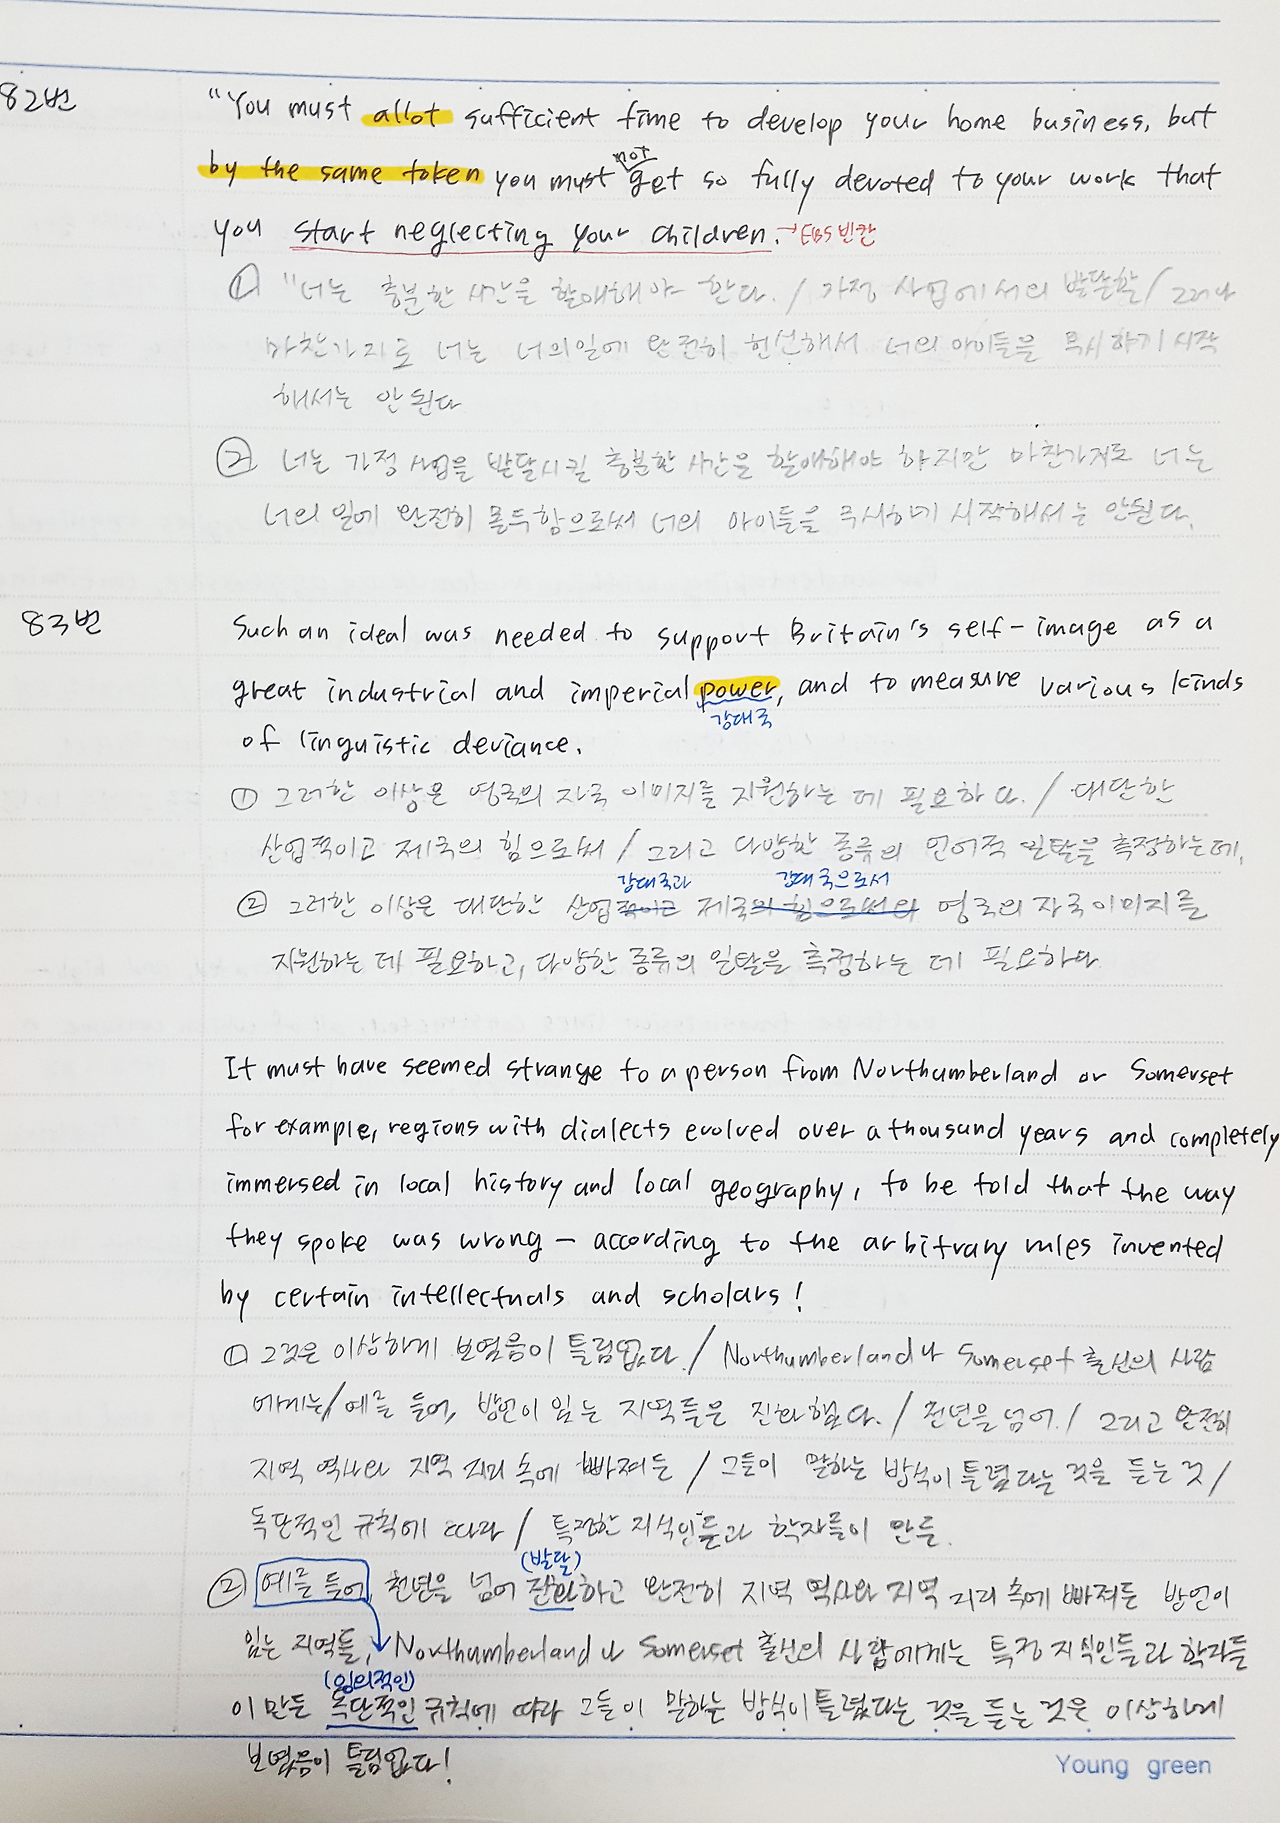 82번
"You must allot sufficient time to develop your home business, but
by the same token you must not get so fully devoted to your work that
you start neglecting your children. →EBS 빈칸
① "너는 충분한 시간을 할애해야 한다. / 가정 사업에서의 발달할 / 그러나
마찬가지로 너는 너의 일에 완전히 헌신해서 너의 아이들을 무시하기 시작
해서는 안 된다
② 너는 가정 사업을 발달시킬 충분한 시간을 할애해야 하지만 마찬가지로 너는
너의 일에 완전히 몰두함으로써 너의 아이들을 무시하기 시작해서는 안된다.
83번
Such an ideal was needed to support Britain's self-image as a
great industrial and imperial power, and to measure various kinds
강대국
of linguistic deviance.
① 그러한 이상은 영국의 자국 이미지를 지원하는 데 필요하다. / 대단한
산업적이고 제국의 힘으로써 / 그리고 다양한 종류의 언어적 일탈을 측정하는데.
강대국과 강대국으로서
② 그러한 이상은 대단한 산업적이고 제국의 힘으로써의 영국의 자국 이미지를
지원하는 데 필요하고, 다양한 종류의 일탈을 측정하는 데 필요하다
It must have seemed strange to a person from Northumberland or Somerset
for example, regions with dialects evolved over a thousand years and completely
immersed in local history and local geography, to be told that the way
they spoke was wrong - according to the arbitrary rules invented
by certain intellectuals and scholars!
① 그것은 이상하게 보였음이 틀림없다. / Northumberland나 Somerset 출신의 사람
에게는 / 예를 들어, 방언이 있는 지역들은 진화했다. / 천년을 넘어 / 그리고 완전히
지역 역사와 지역 지리 속에 빠져든 / 그들이 말하는 방식이 틀렸다는 것을 듣는 것 /
독단적인 규칙에 따라 / 특정한 지식인들과 학자들이 만든.
(발달)
② 예를 들어 천년을 넘어 진화하고 완전히 지역 역사와 지역 지리 속에 빠져든 방언이
있는 지역들, Northumberland나 Somerset 출신의 사람에게는 특정 지식인들과 학자들
(임의적인)
이 만든 독단적인 규칙에 따라 그들이 말하는 방식이 틀렸다는 것을 듣는 것은 이상하게
보였음이 틀림없다!
Young green